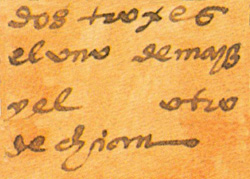 dos troxes
el uno de maiz
y el otro
de chian